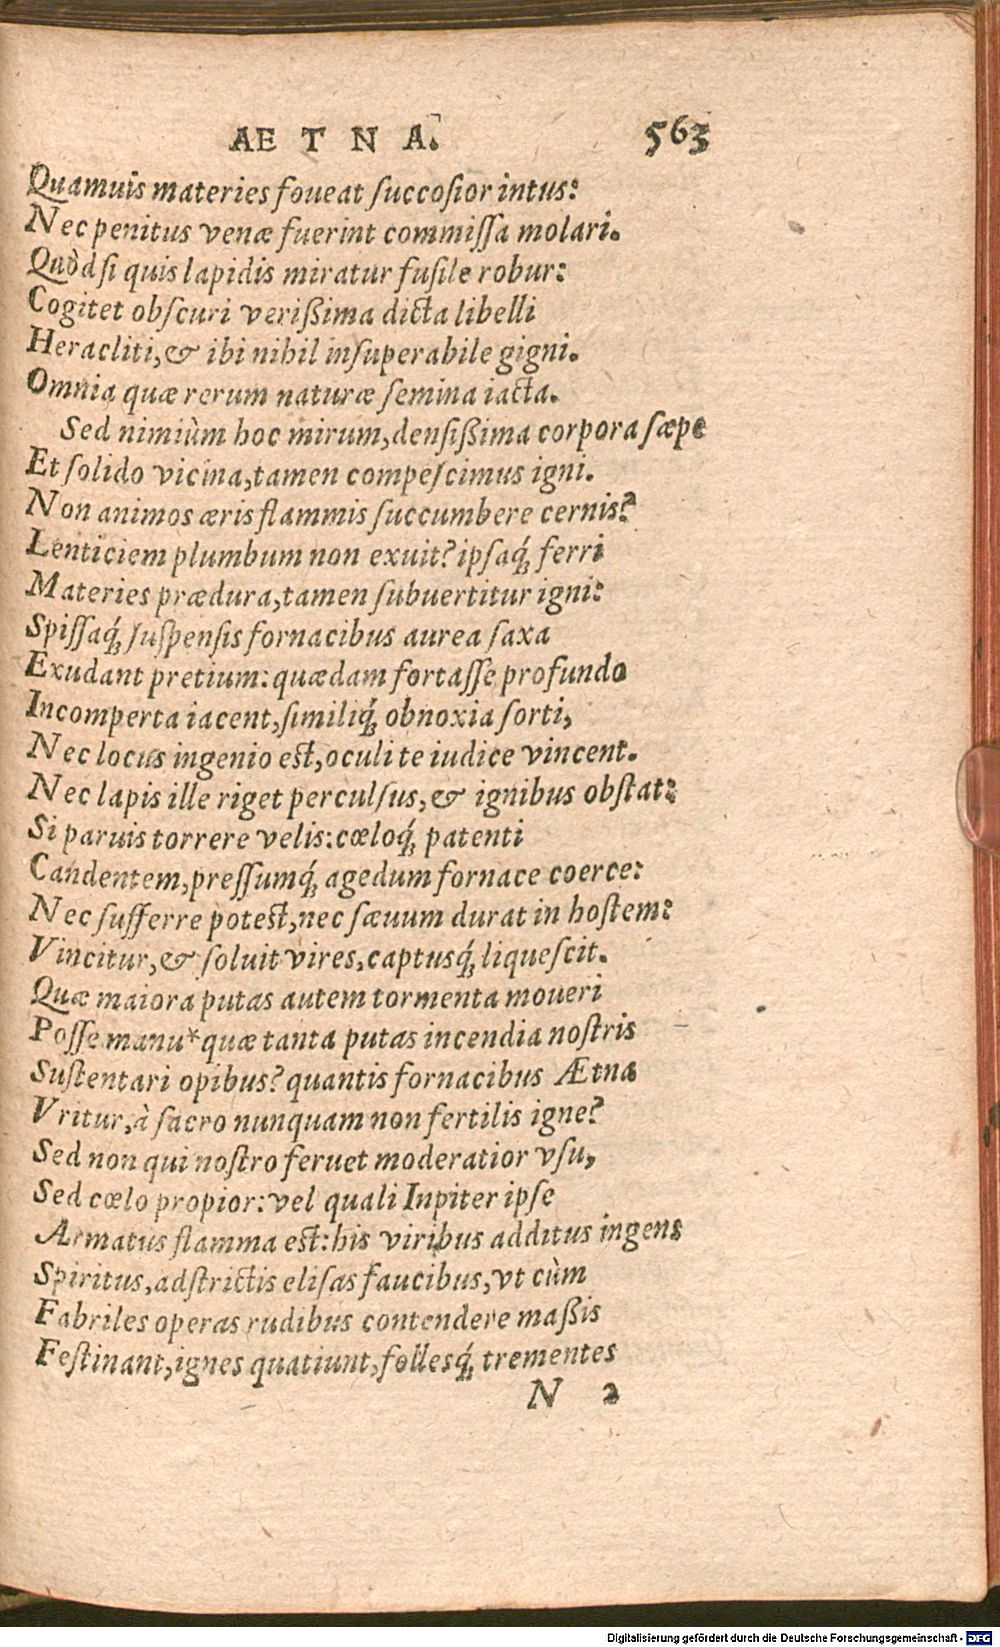 AETNA. 563
Quamuis materies foueat ſuccoſior intus:
Nec penitus venæ fuerint commiſſa molari.
Quòd ſi quis lapidis miratur fuſile robur:
Cogitet obſcuri verißima dicta libelli
Heracliti, & ibi nihil inſuperabile gigni.
Omnia quæ rerum naturæ ſemina iacta.
Sed nimiùm hoc mirum, denſißima corpora ſæpe
Et ſolido vicina, tamen compeſcimus igni.
Non animos æris flammis ſuccumbere cernis?
Lenticiem plumbum non exuit? ipſaq́; ferri
Materies prædura, tamen ſubuertitur igni:
Spiſſaq́; ſuſpenſis fornacibus aurea ſaxa
Exudant pretium: quædam fortaſſe profundo
Incomperta iacent, ſimiliq́; obnoxia ſorti,
Nec locus ingenio est, oculi te iudice vincent.
Nec lapis ille riget perculſus, & ignibus obſtat:
Si paruis torrere velis: cœloq́; patenti
Candentem, preſſumq́; agedum fornace coerce:
Nec ſufferre potest, nec ſæuum durat in hoſtem:
Vincitur, & ſoluit vires, captusq́; liqueſcit.
Quæ maiora putas autem tormenta moueri
Poſſe manu* quæ tanta putas incendia noſtris
Suſtentari opibus? quantis fornacibus Ætna
Vritur, à ſacro nunquam non fertilis igne?
Sed non qui noſtro feruet moderatior vſu,
Sed cœlo propior: vel quali Inpiter ipſe
Armatus flamma est: his viribus additus ingens
Spiritus, adſtrictis eliſas faucibus, vt cùm
Fabriles operas rudibus contendere maßis
Feſtinant, ignes quatiunt, folleſq́; trementes
N 2
Digitalisierung gefördert durch die Deutsche Forschungsgemeinschaft - DFG